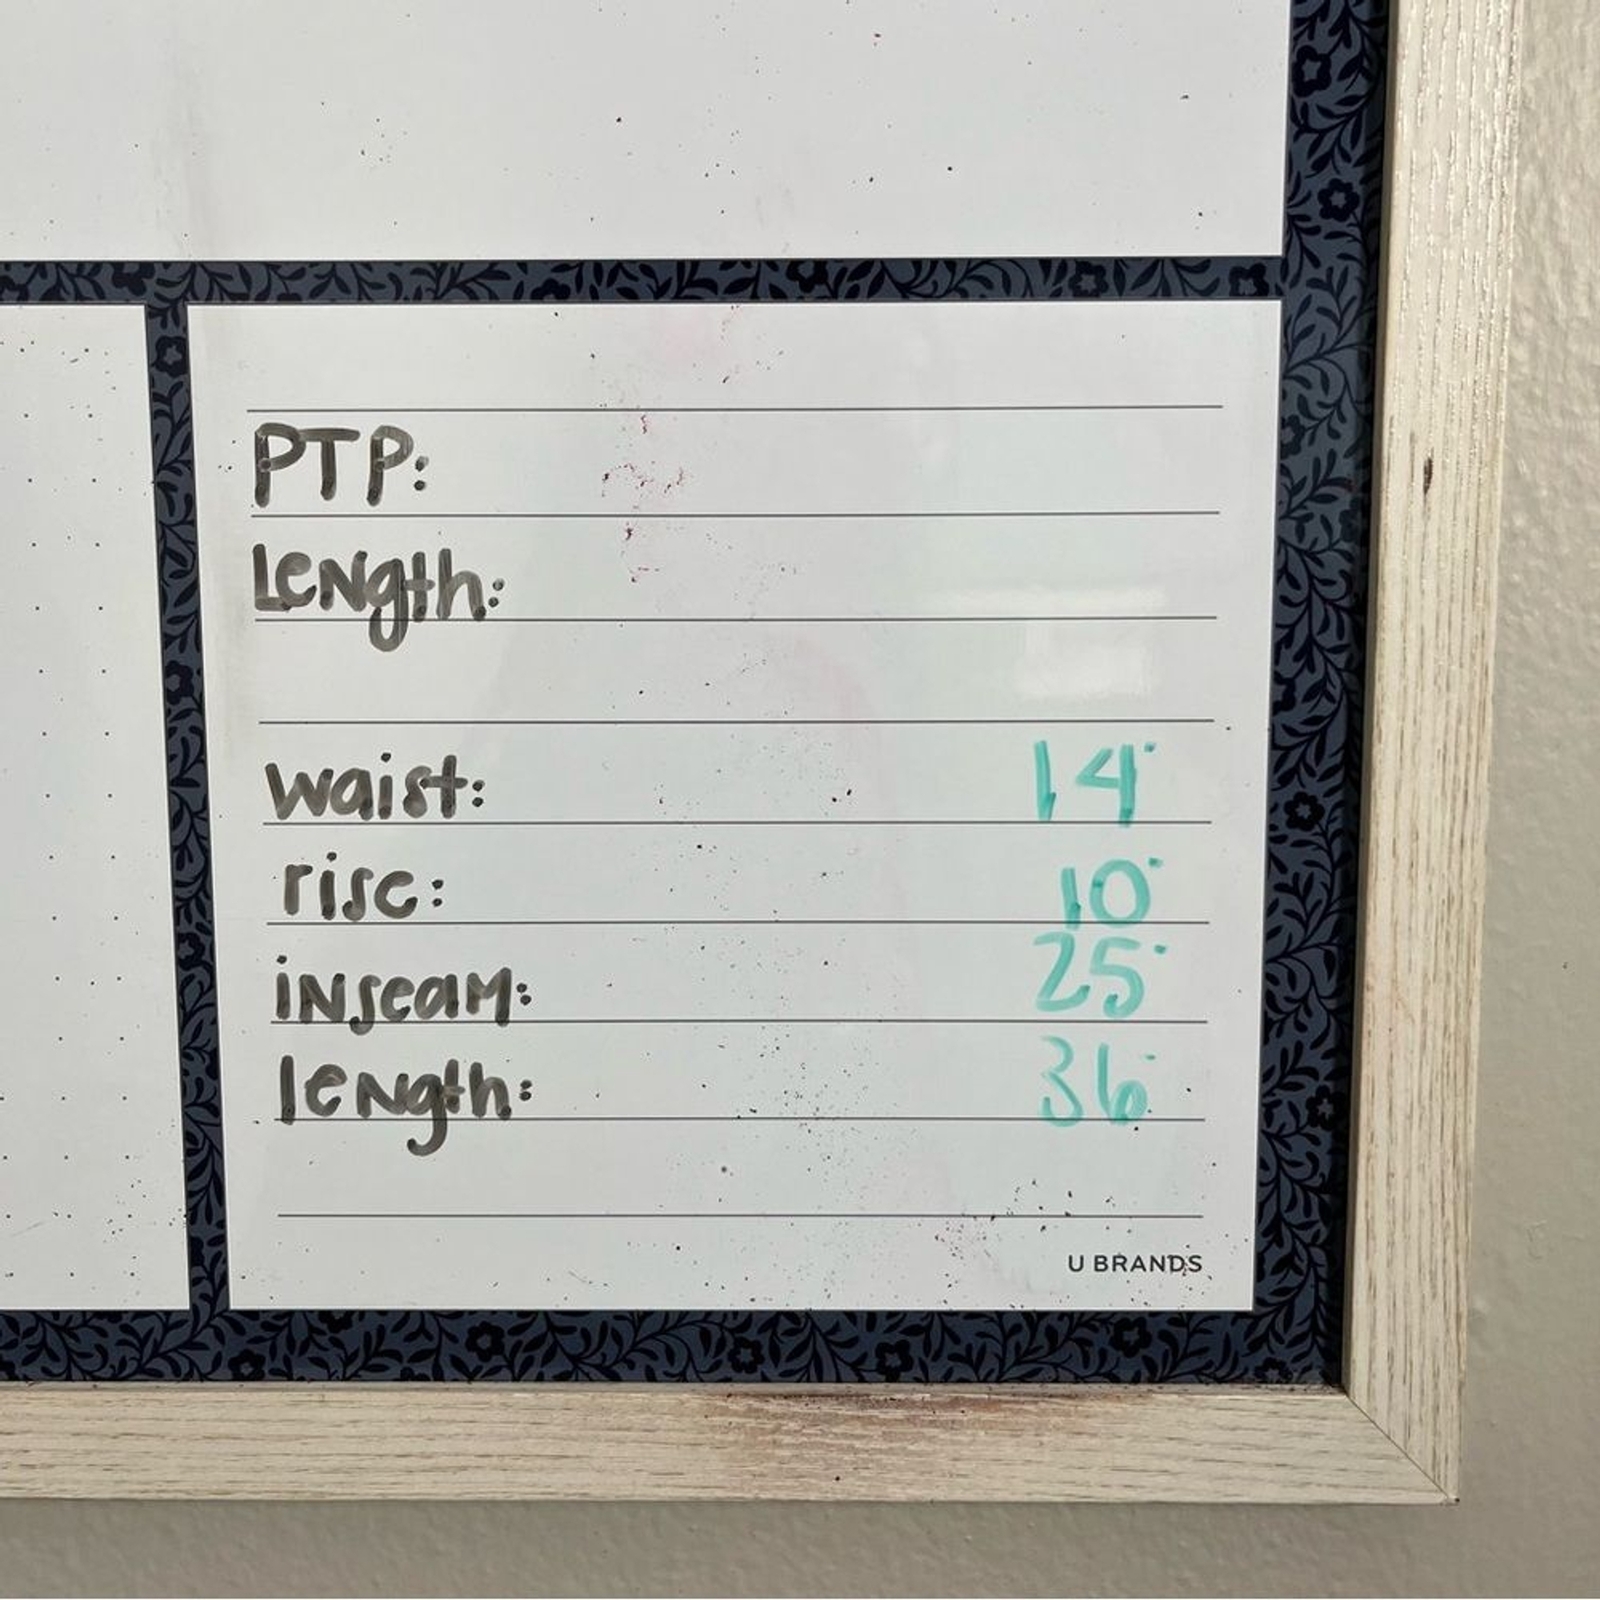 PTP:
Length:
waist: 14"
rise: 10"
inseam: 25"
length: 36"
U BRANDS